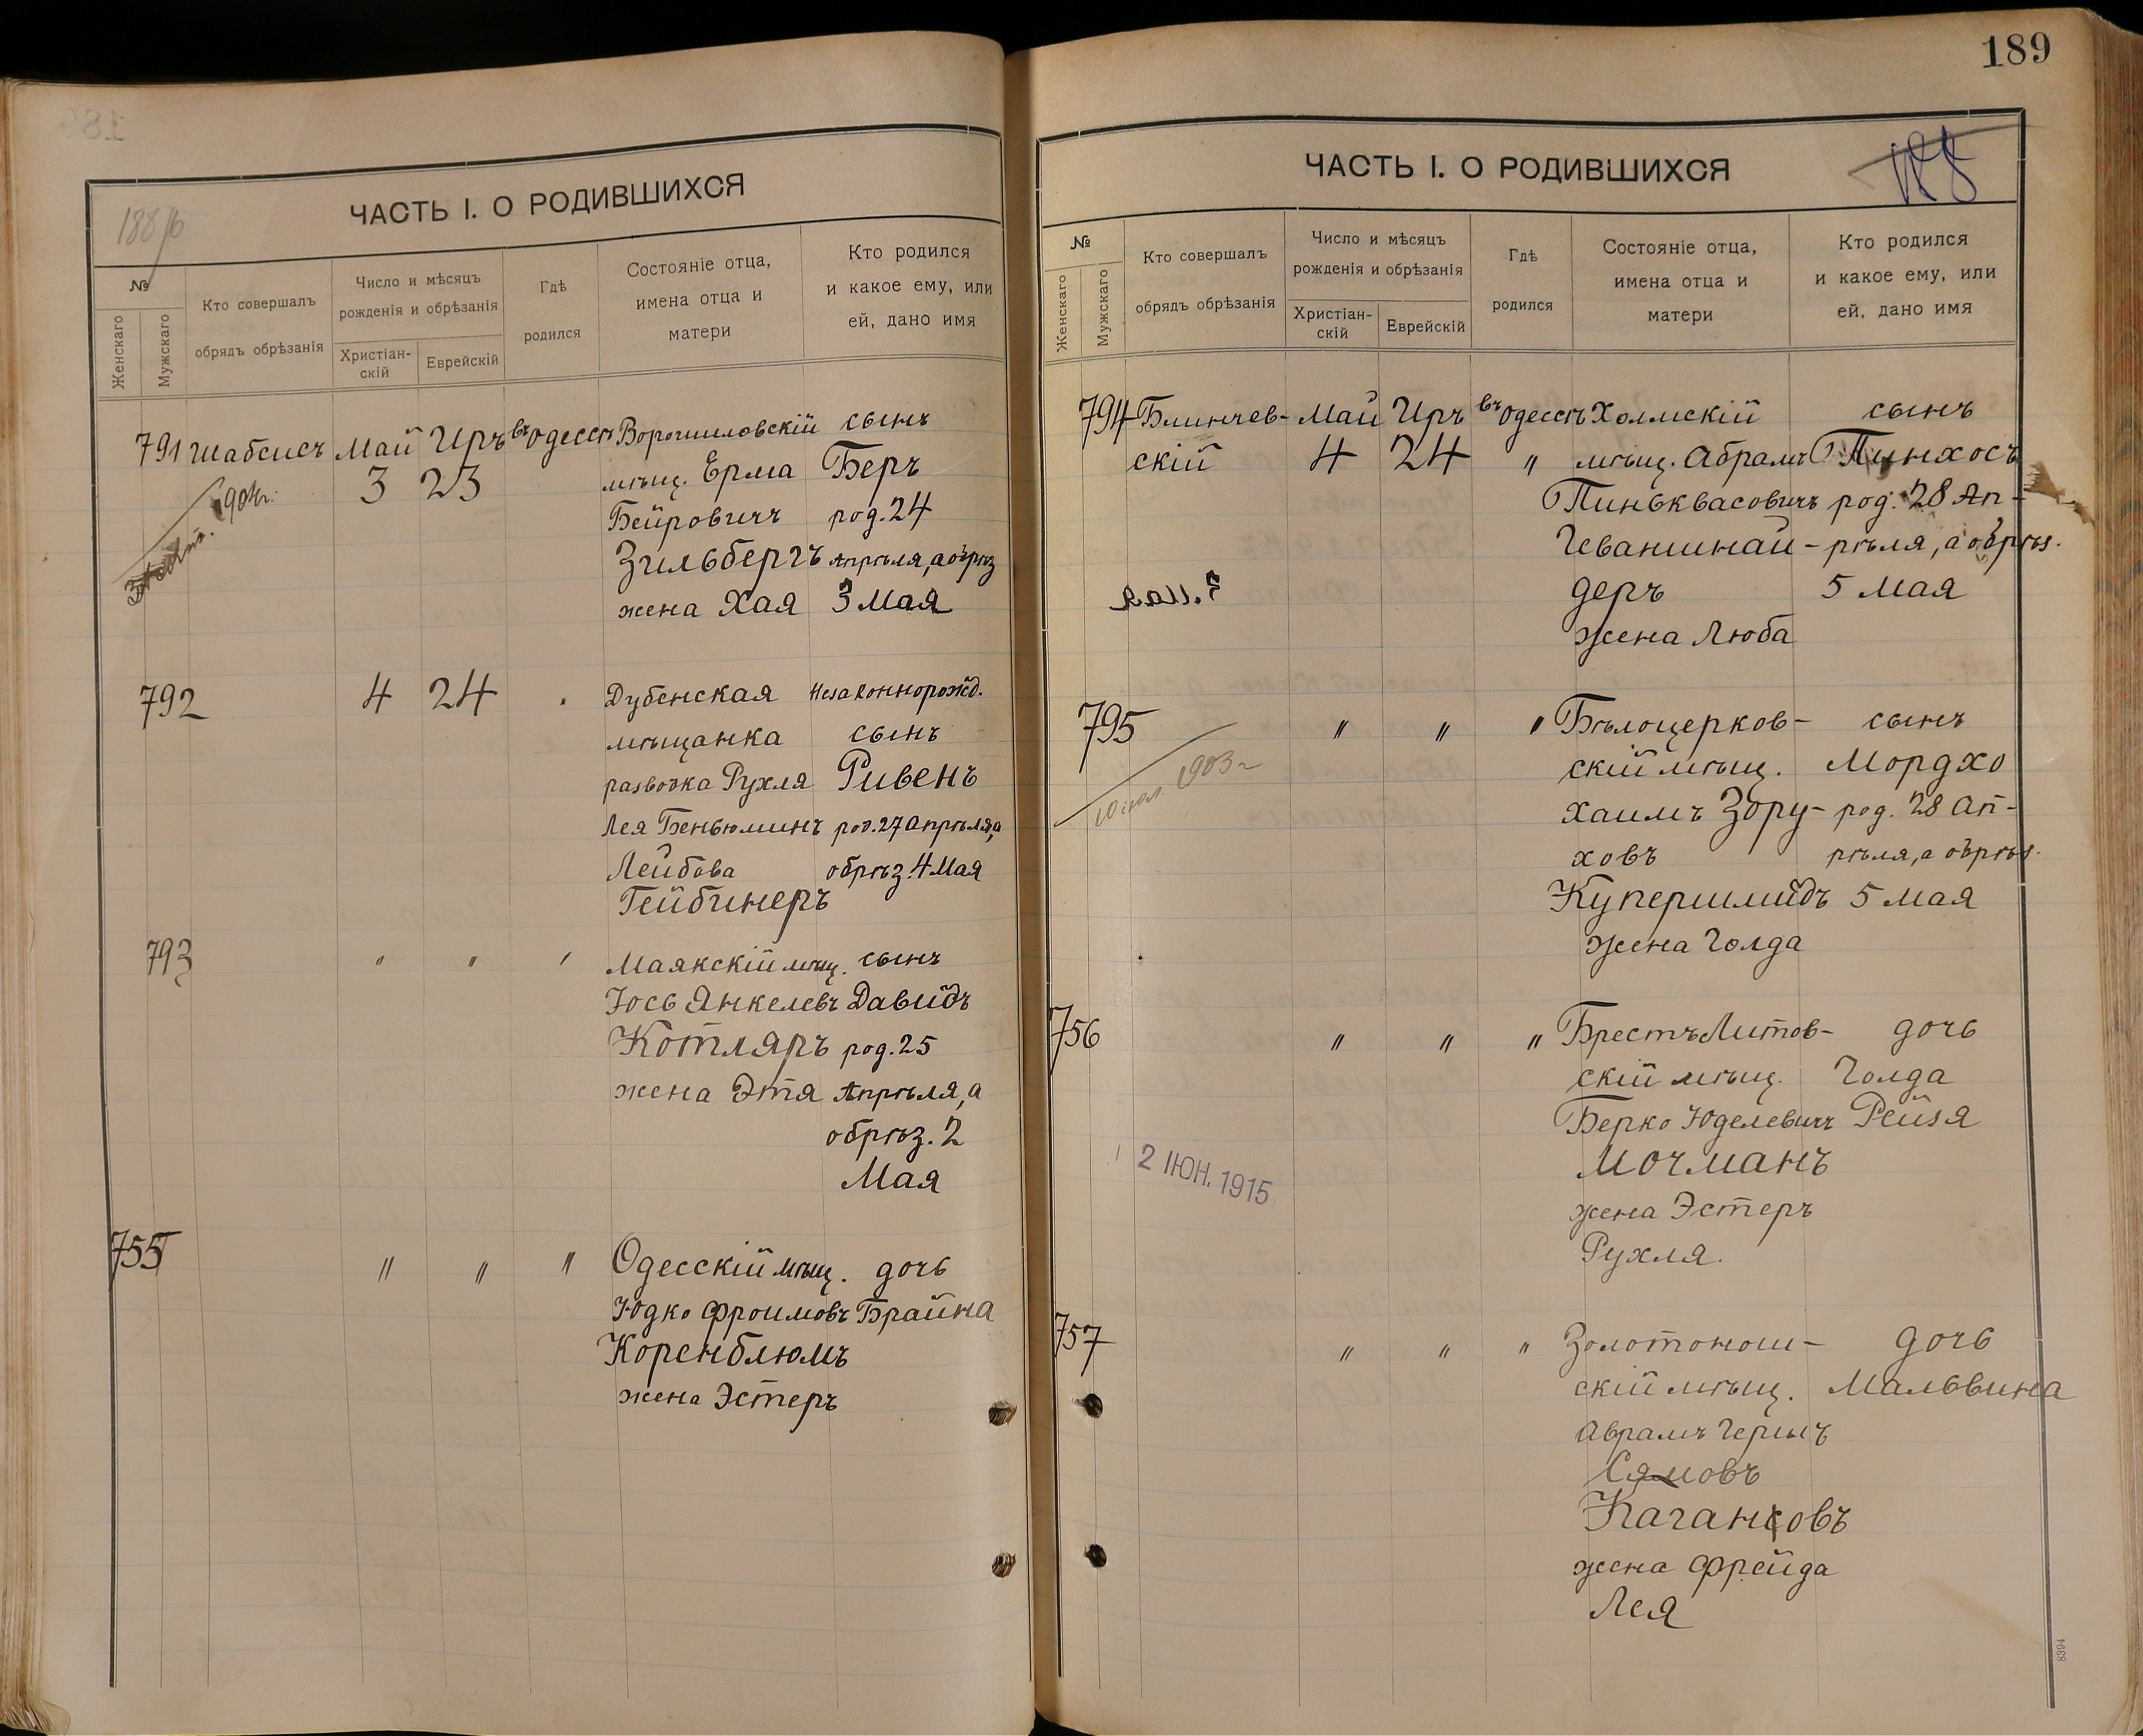 189
ЧАСТЬ I. О РОДИВШИХСЯ
№
Женскаго
Мужскаго
Кто совершалъ
обрядъ обрѣзанія
Число и мѣсяцъ
рожденія и обрѣзанія
Христіан-
скій
Еврейскій
Гдѣ
родился
Состояніе отца,
имена отца и
матери
Кто родился
и какое ему, или
ей, дано имя
791 Шабсисъ Май Иръ въ Одессѣ Ворошиловскій сынъ
3 23 мѣщ. Ерма Беръ
Бейровичъ род. 24
Зильбергъ Апрѣля, а обрѣз
жена Хая 3 Мая
792 4 24 Дубенская незаконнорожд.
мѣщанка сынъ
разводка Рухля Ривенъ
Лея Беньюминъ род. 27 Апрѣля, а
Лейбова обрѣз. 4 Мая
Гейбинеръ
793 " " " Маякскій мѣщ. сынъ
Іось Янкелевъ Давидъ
Котляръ род. 25
жена Этя Апрѣля, а
обрѣз. 2
Мая
755 " " " Одесскій мѣщ. дочь
Юдко Фроимовъ Брайна
Коренблюмъ
жена Эстеръ
ЧАСТЬ I. О РОДИВШИХСЯ
№
Женскаго
Мужскаго
Кто совершалъ
обрядъ обрѣзанія
Число и мѣсяцъ
рожденія и обрѣзанія
Христіан-
скій
Еврейскій
Гдѣ
родился
Состояніе отца,
имена отца и
матери
Кто родился
и какое ему, или
ей, дано имя
794 Блинчев- Май Иръ въ Одессѣ Холмскій сынъ
скій 4 24 " мѣщ. Абрамъ Пинхосъ
Пиньквасовичъ род. 28 Ап-
Геваншнай- рѣля, а обрѣз.
деръ 5 Мая
жена Люба
795 " " " Бѣлоцерков- сынъ
скій мѣщ. Мордхо
1903 г
Хаимъ Зору- род. 28 Ап-
ховъ рѣля, а обрѣз.
Купершмидъ 5 Мая
жена Голда
756 " " " Брестъ Литов- дочь
скій мѣщ. Голда
Берко Юделевичъ Рейзя
Мочманъ
2 ІЮН. 1915
жена Эстеръ
Рухля.
757 " " " Золотонош- дочь
скій мѣщ. Мальвина
Аврамъ Гершъ
Сямовъ
Кагановъ
жена Фрейда
Лея
8394